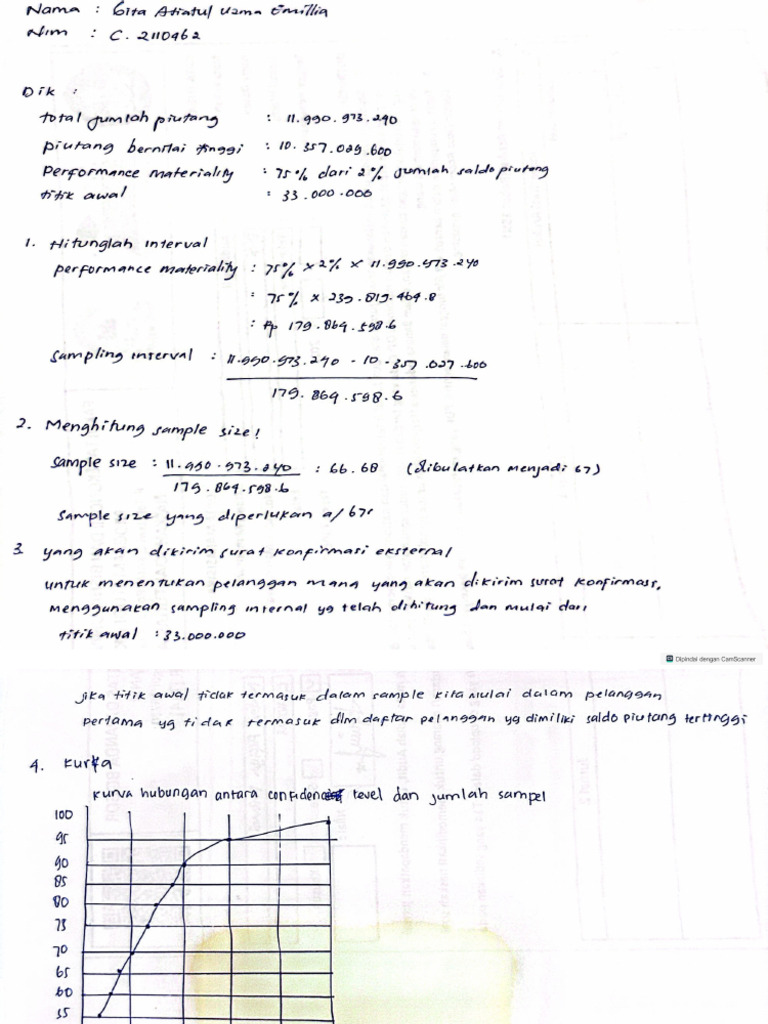 Nama : Gita Atiatul Uzma Emillia
Nim : C. 2110462
Dik :
total jumlah piutang : 11.990.973.240
piutang bernilai tinggi : 10.357.029.600
performance materiality : 75% dari 2% jumlah saldo piutang
titik awal : 33.000.000
1. Hitunglah interval
performance materiality : 75% x 2% x 11.990.973.240
: 75% x 239.819.464.8
: Rp 179.864.598.6
Sampling interval : 11.990.973.240 - 10 - 357.027.600
179.864.598.6
2. Menghitung sample size!
Sample size : 11.990.973.240 : 66.68 (dibulatkan menjadi 67)
179.864.598.6
Sample size yang diperlukan a/ 67
3. yang akan dikirim surat konfirmasi eksternal
untuk menentukan pelanggan mana yang akan dikirim surat konfirmasi,
menggunakan sampling internal yg telah dihitung dan mulai dari
titik awal : 33.000.000
Dipindai dengan CamScanner
jika titik awal tidak termasuk dalam sample kita mulai dalam pelanggan
pertama yg tidak termasuk dlm daftar pelanggan yg dimiliki saldo piutang tertinggi
4. Kurva
Kurva hubungan antara confidence level dan jumlah sampel
100
95
90
85
80
75
70
65
60
55